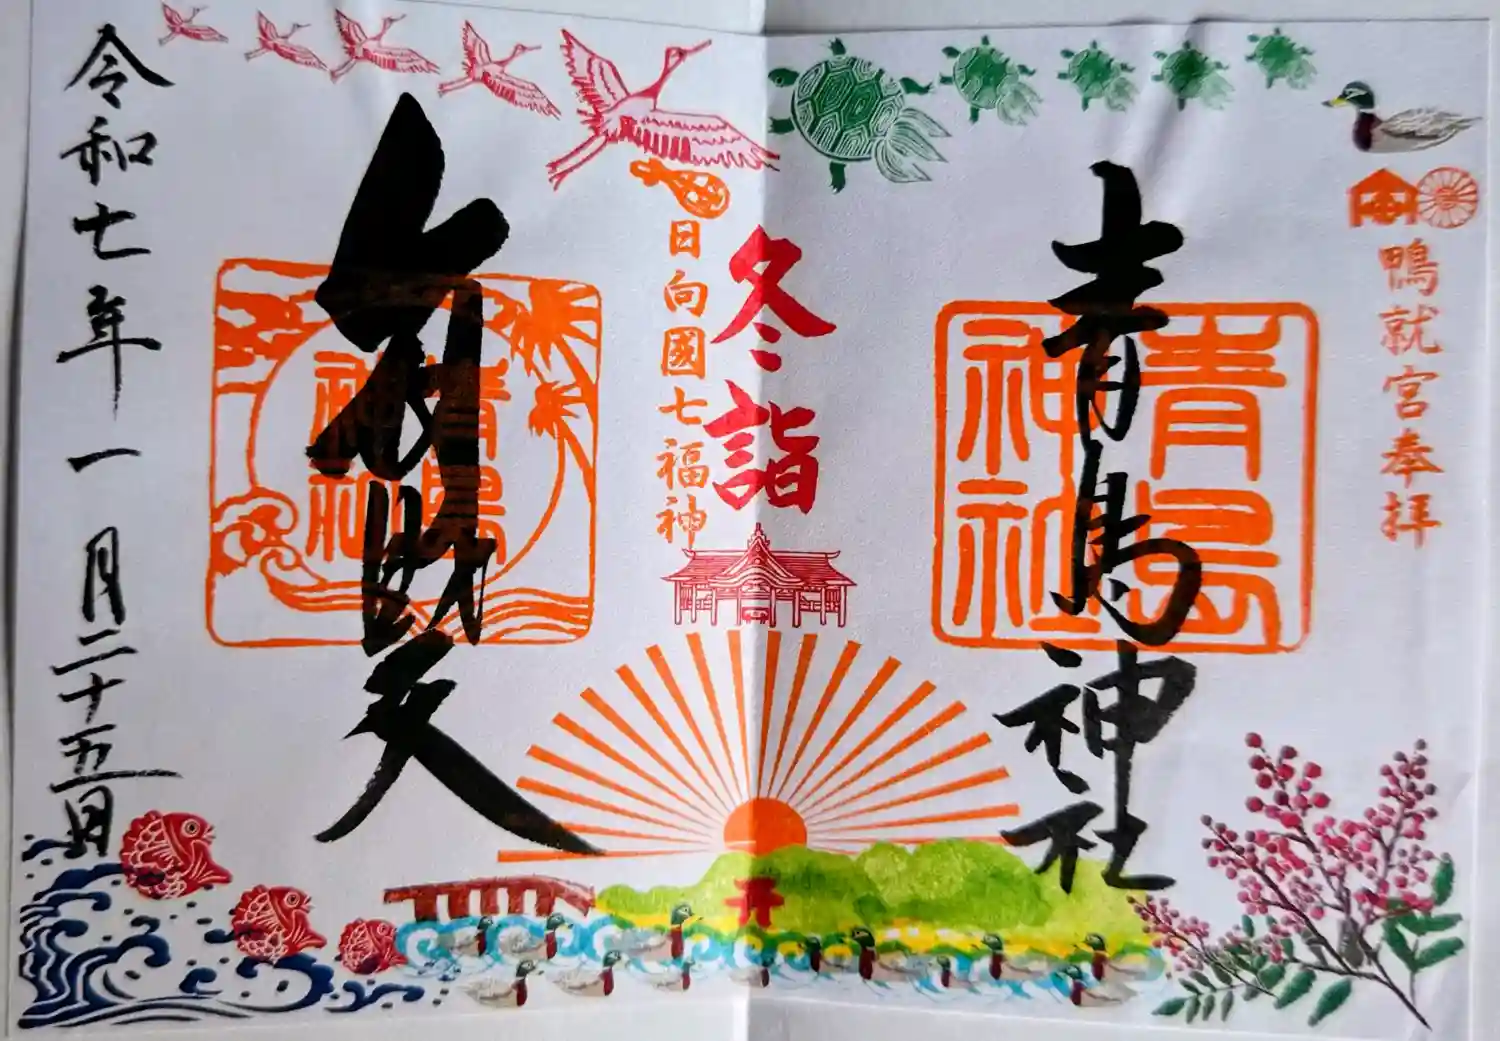 鴨就宮奉拝
青島神社
青島
神社
冬詣
日向國七福神
弁財天
青島
神社
令和七年一月二十五日